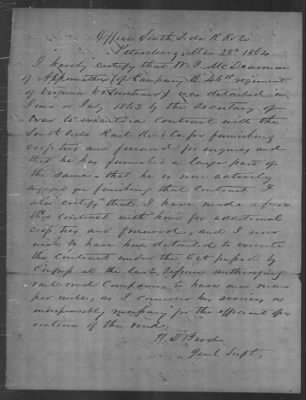 Office South Side R. R. Co
Petersburg, Mar 23d 1864
I hereby certify that W. J. McDearmon
of Appomattox (of Company B, 46th regiment
of Virginia Volunteers) was detailed in
June or July 1863 by the Secretary of
War to execute a Contract with the
South Side Rail Road Co for furnishing
cross ties and firewood for engines and
that he has furnished a large part of
the same & that he is now actively
engaged in finishing that Contract. I
also certify that I have made a further
Contract with him for additional
cross ties and firewood, and I now
wish to have him detailed to execute
the Contract under the act passed by
Congress at the last session authorizing
rail road Companies to have one man
per mile, as I consider his services as
indispensably necessary for the efficient op
eration of the road.
Genl Supt.